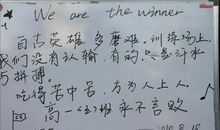 We are the winner
自古英雄多磨难,训练场上
我们没有认输,有的只是汗水
与拼搏
吃得苦中苦,方为人上人
高一(2)班永不言败